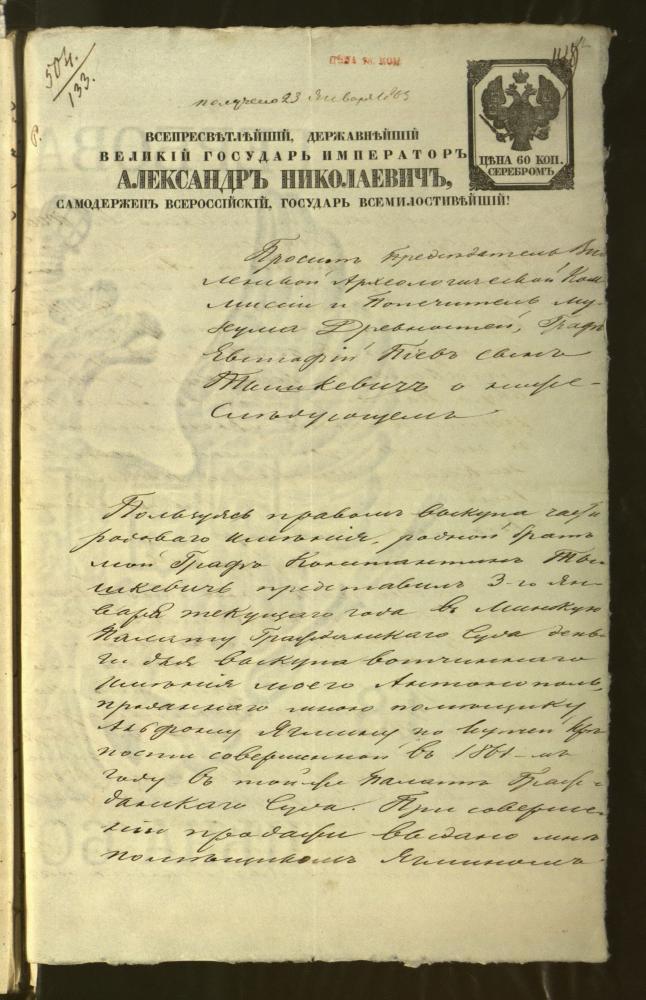 504.
133.
ЦѢНА 60 КОП.
СЕРЕБРОМЪ
получено 23 Января 1863
ВСЕПРЕСВѢТЛѢЙШІЙ, ДЕРЖАВНѢЙШІЙ
ВЕЛИКІЙ ГОСУДАРЬ ИМПЕРАТОРЪ
АЛЕКСАНДРЪ НИКОЛАЕВИЧЪ,
САМОДЕРЖЕЦЪ ВСЕРОССІЙСКІЙ, ГОСУДАРЬ ВСЕМИЛОСТИВѢЙШІЙ!
Проситъ Предсѣдатель Ви-
ленской Археологической Ком-
миссіи и Попечитель Му-
зеума Древностей, Графъ
Евстафій Піевъ сынъ
Тышкевичъ о ниже-
слѣдующемъ
Пользуясь правомъ выкупа части
родоваго имѣнія, родной братъ
мой Графъ Константинъ Ты-
шкевичъ представилъ 3-го Ян-
варя текущаго года въ Минскую
Палату Гражданскаго Суда день-
ги для выкупа вотчиннаго
имѣнія моего Антонополь,
проданнаго мною помѣщику
Ягмину по купчей крѣ-
пости совершенной въ 1861-мъ
году въ той же Палатѣ Граж-
данскаго Суда. При соверше-
ніи продажи выдано мнѣ
помѣщикомъ Ягминомъ